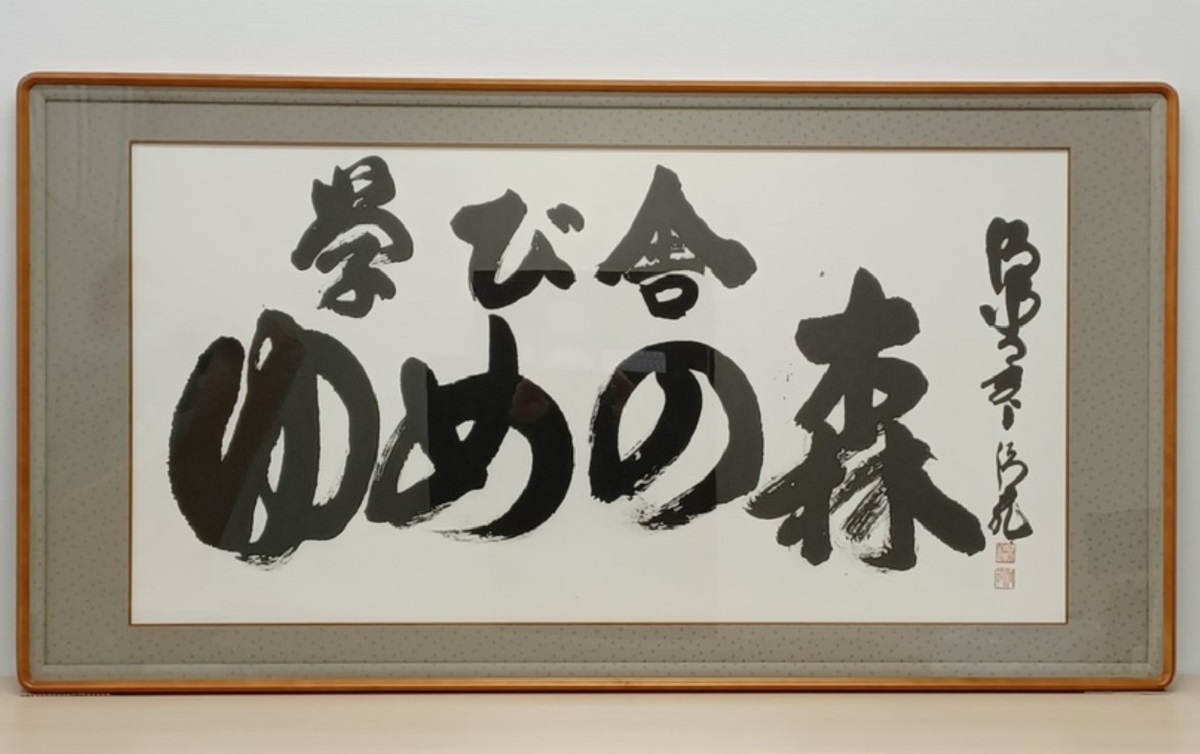 学び舎
ゆめの森